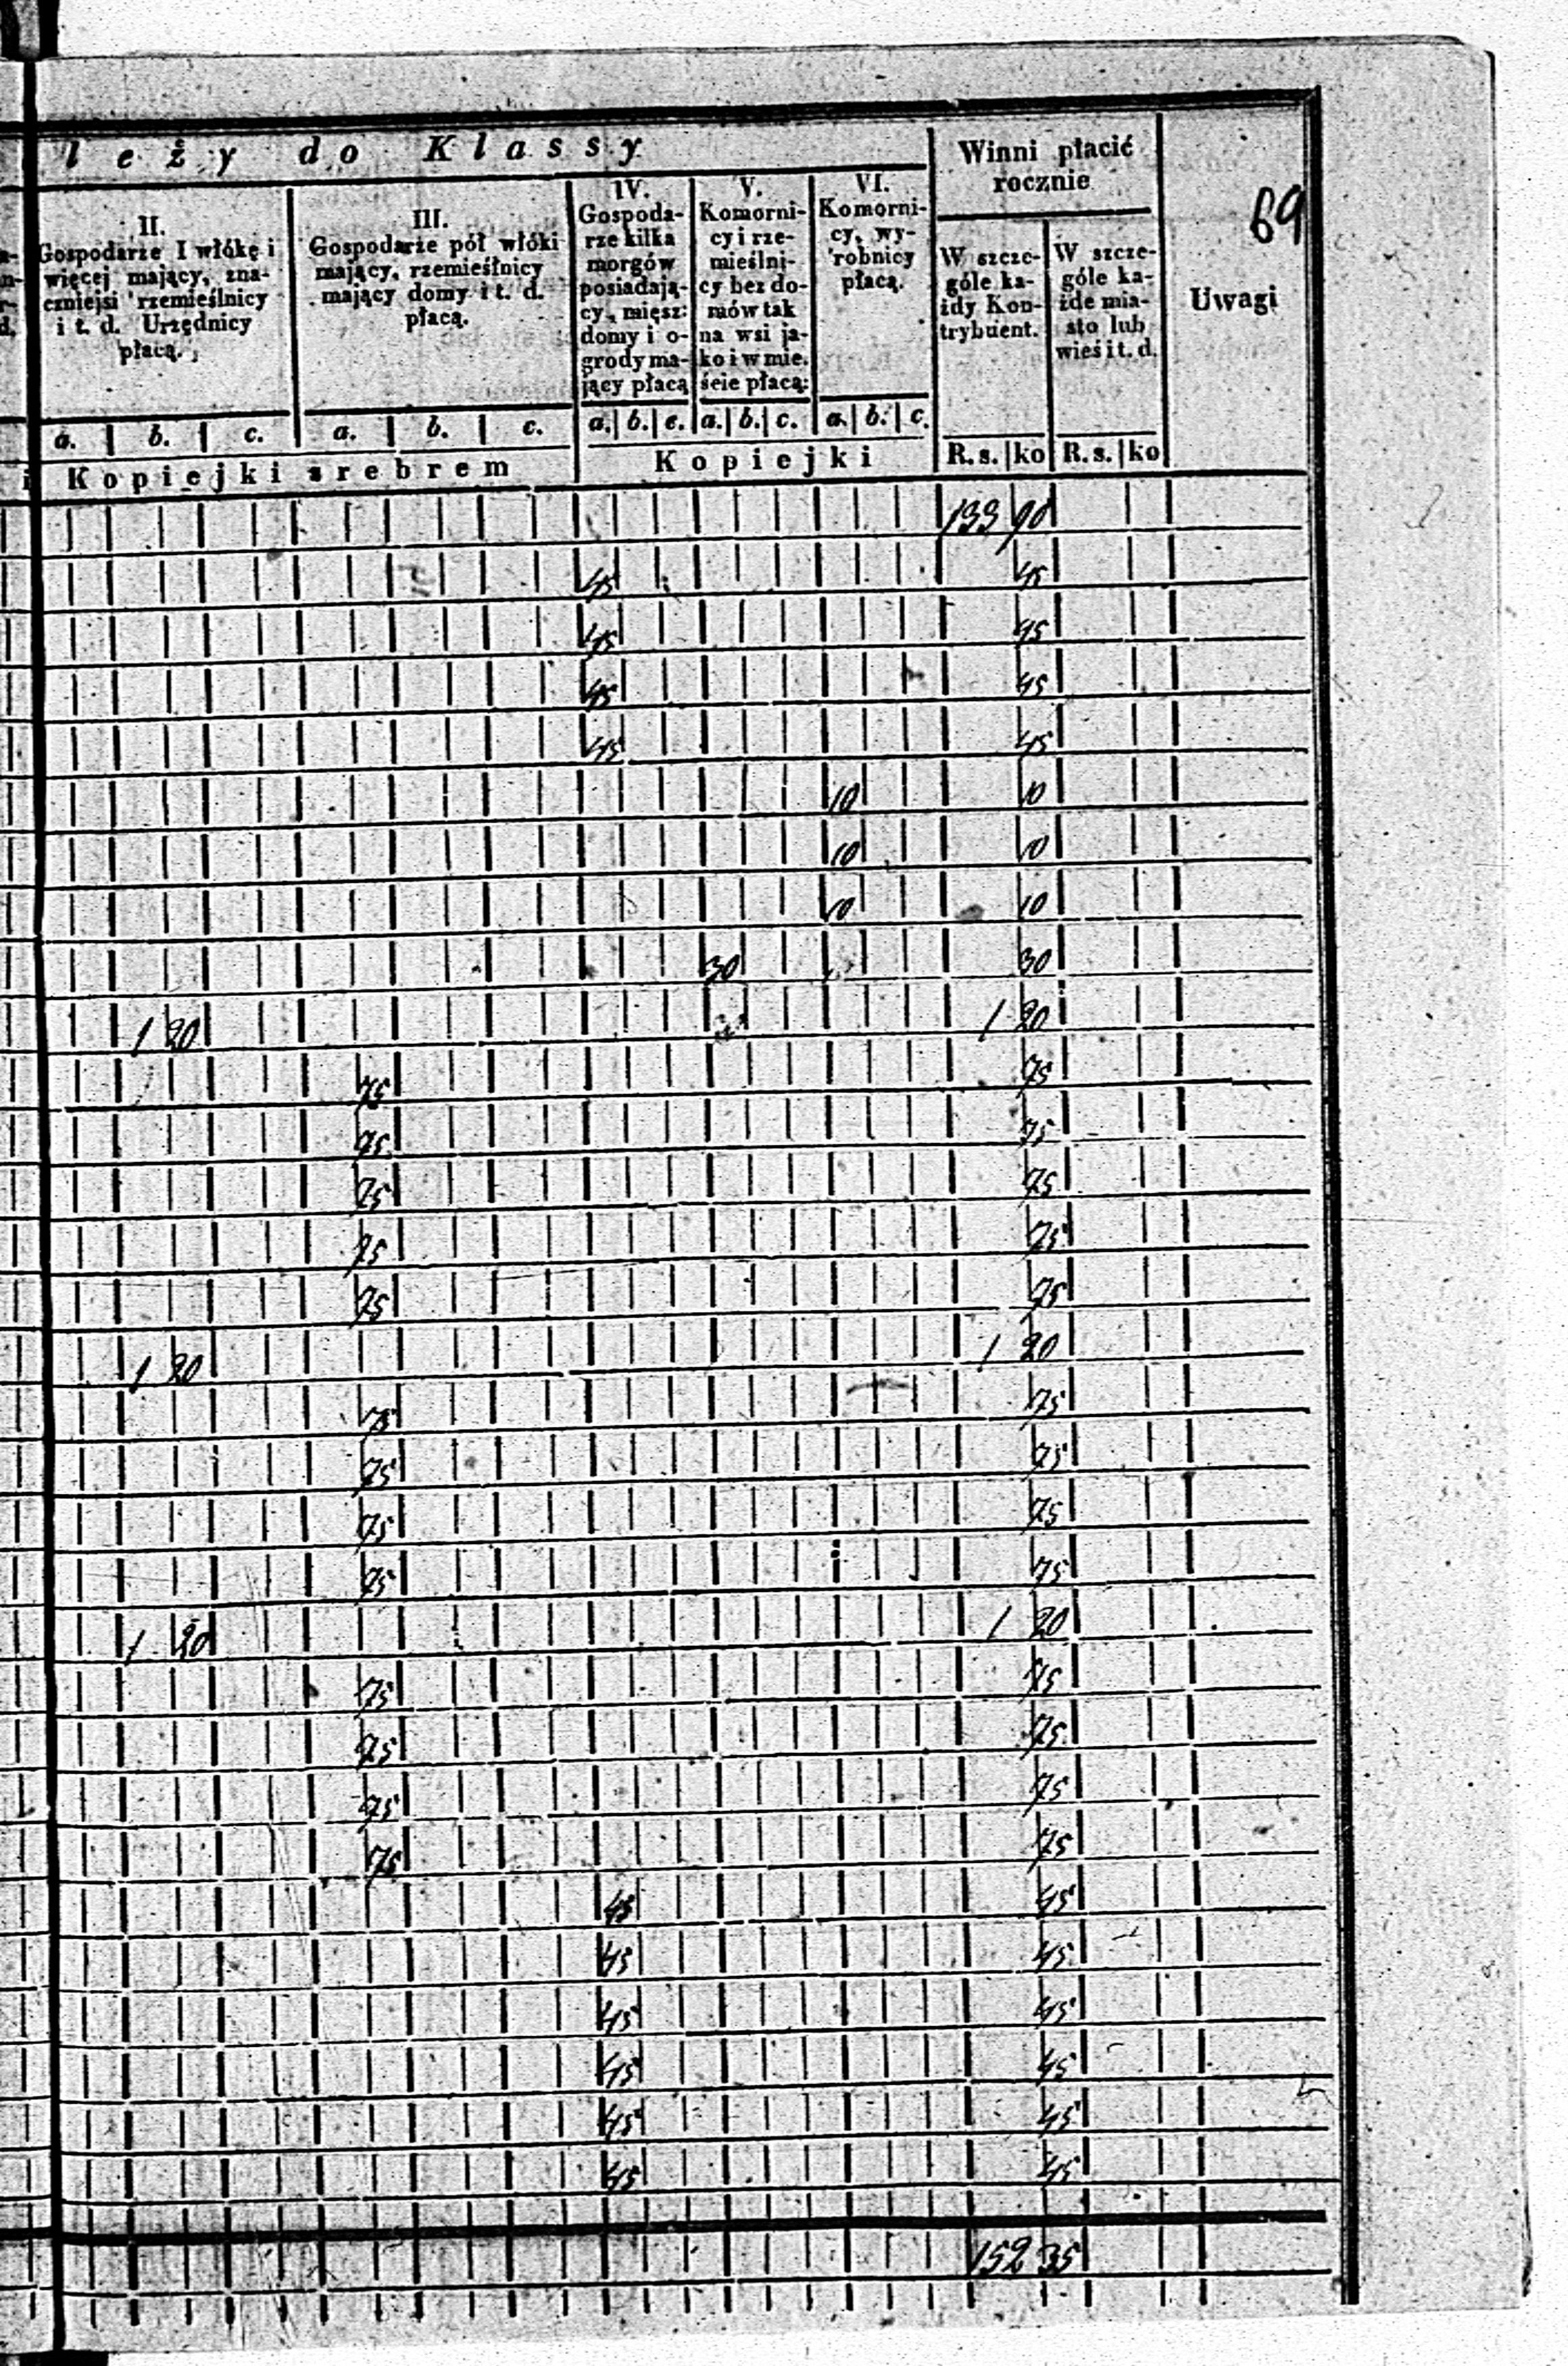 leży do Klassy
Winni płacić
rocznie
69
II.
Gospodarze I włókę i
więcej mający, zna-
czniejsi rzemieślnicy
i t. d. Urzędnicy
płacą.
III.
Gospodarze pół włóki
mający, rzemieślnicy
mający domy i t. d.
płacą.
IV.
Gospoda-
rze kilka
morgów
posiadają-
cy, mięsz:
domy i o-
grody ma-
jący płacą
V.
Komorni-
cy i rze-
mieślni-
cy bez do-
mów tak
na wsi ja-
ko i w mie.
ście płacą:
VI.
Komorni-
cy, wy-
robnicy
płacą.
W szcze-
góle ka-
żdy Kon-
trybuent.
W szcze-
góle ka-
żde mia-
sto lub
wieś i t. d.
Uwagi
a. b. c. a. b. c. a. b. c. a. b. c. a. b. c.
Kopiejki srebrem Kopiejki R. s. ko R. s. ko
133 90
45 45
45 45
45 45
45 45
10 10
10 10
10 10
30 30
1 20 1 20
75 75
75 75
75 75
75 75
75 75
1 20 1 20
75 75
75 75
75 75
75 75
1 20 1 20
75 75
75 75
75 75
75 75
45 45
45 45
45 45
45 45
45 45
45 45
152 35